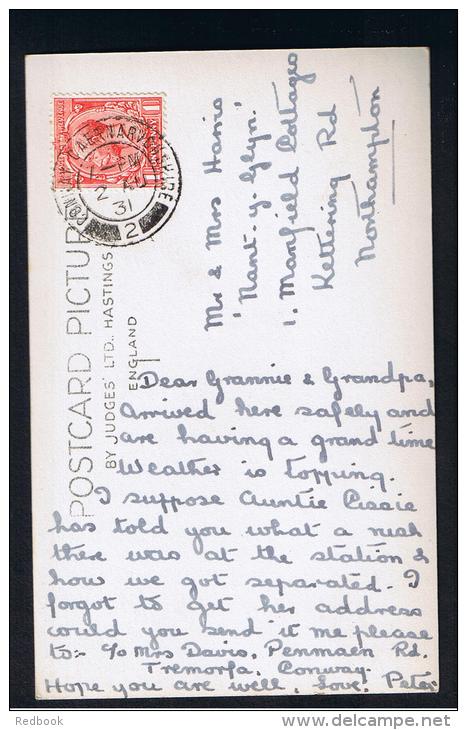 CONWAY CAERNARVONSHIRE
PM
2 AU
31
2
POSTCARD PICTUR
BY JUDGES' LTD., HASTINGS
ENGLAND
Mr & Mrs Harris
'Nant-y-Glyn'
1, Manfield Cottages
Kettering Rd
Northampton
Dear Grannie & Grandpa,
Arrived here safely and
are having a grand time
Weather is topping.
I suppose Auntie Cissie
has told you what a rush
there was at the station &
how we got separated. I
forgot to get her address
could you send it me please
to:- c/o Mrs Davis, Penmaen Rd.
Tremorfa, Conway.
Hope you are well, Love, Peter
Redbook